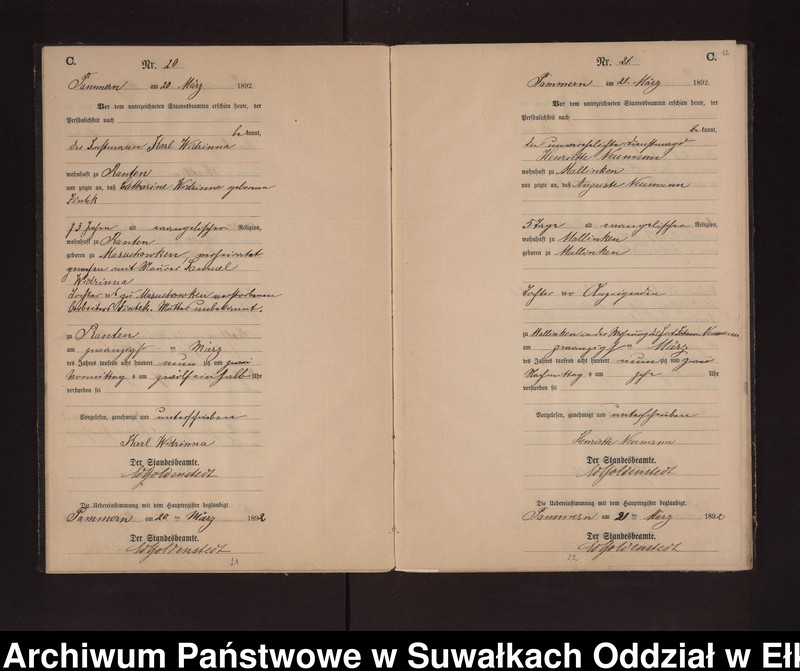 C.
Nr. 20
Pammern am 20 März 1892.
Vor dem unterzeichneten Standesbeamten erschien heute, der
Persönlichkeit nach
be kannt,
der Karl Widrinna
wohnhaft zu Ranten
und zeigte an, daß Catharine Widrinna geborene
73 Jahre alt evangelischer Religion,
wohnhaft zu Ranten
geboren zu Maruchowken, verheiratet
gewesen mit Maurer Samuel
Widrinna
Tochter des zu Maruchowken verstorbenen
Mutter unbekannt.
zu Ranten
am zwanzigsten März
des Jahres tausend acht hundert neun zig und zwei
Vormittag s um zwölf ein halb Uhr
verstorben sei
Vorgelesen, genehmigt und unterschrieben
Karl Widrinna
Der Standesbeamte.
Goldenstedt
Die Uebereinstimmung mit dem Hauptregister beglaubigt.
Pammern am 20 ten März 1892
Der Standesbeamte.
Goldenstedt
21
C.
Nr. 21
Pammern am 21 März 1892.
Vor dem unterzeichneten Standesbeamten erschien heute, der
Persönlichkeit nach
be kannt,
die unverehelichte Dienstmagd
Henriette Neumann
wohnhaft zu Mallinken
und zeigte an, daß Auguste Neumann
5 Tage alt evangelischer Religion,
wohnhaft zu Mallinken
geboren zu Mallinken
Tochter der Anzeigenden
zu Mallinken in der Wohnung des Johann Neumann
am zwanzigsten März
des Jahres tausend acht hundert neun zig und zwei
Nachmittag s um zehn Uhr
verstorben sei
Vorgelesen, genehmigt und unterschrieben
Henriette Neumann
Der Standesbeamte.
Goldenstedt
Die Uebereinstimmung mit dem Hauptregister beglaubigt.
Pammern am 21 ten März 1892
Der Standesbeamte.
Goldenstedt
22
Archiwum Państwowe w Suwałkach Oddział w Eł